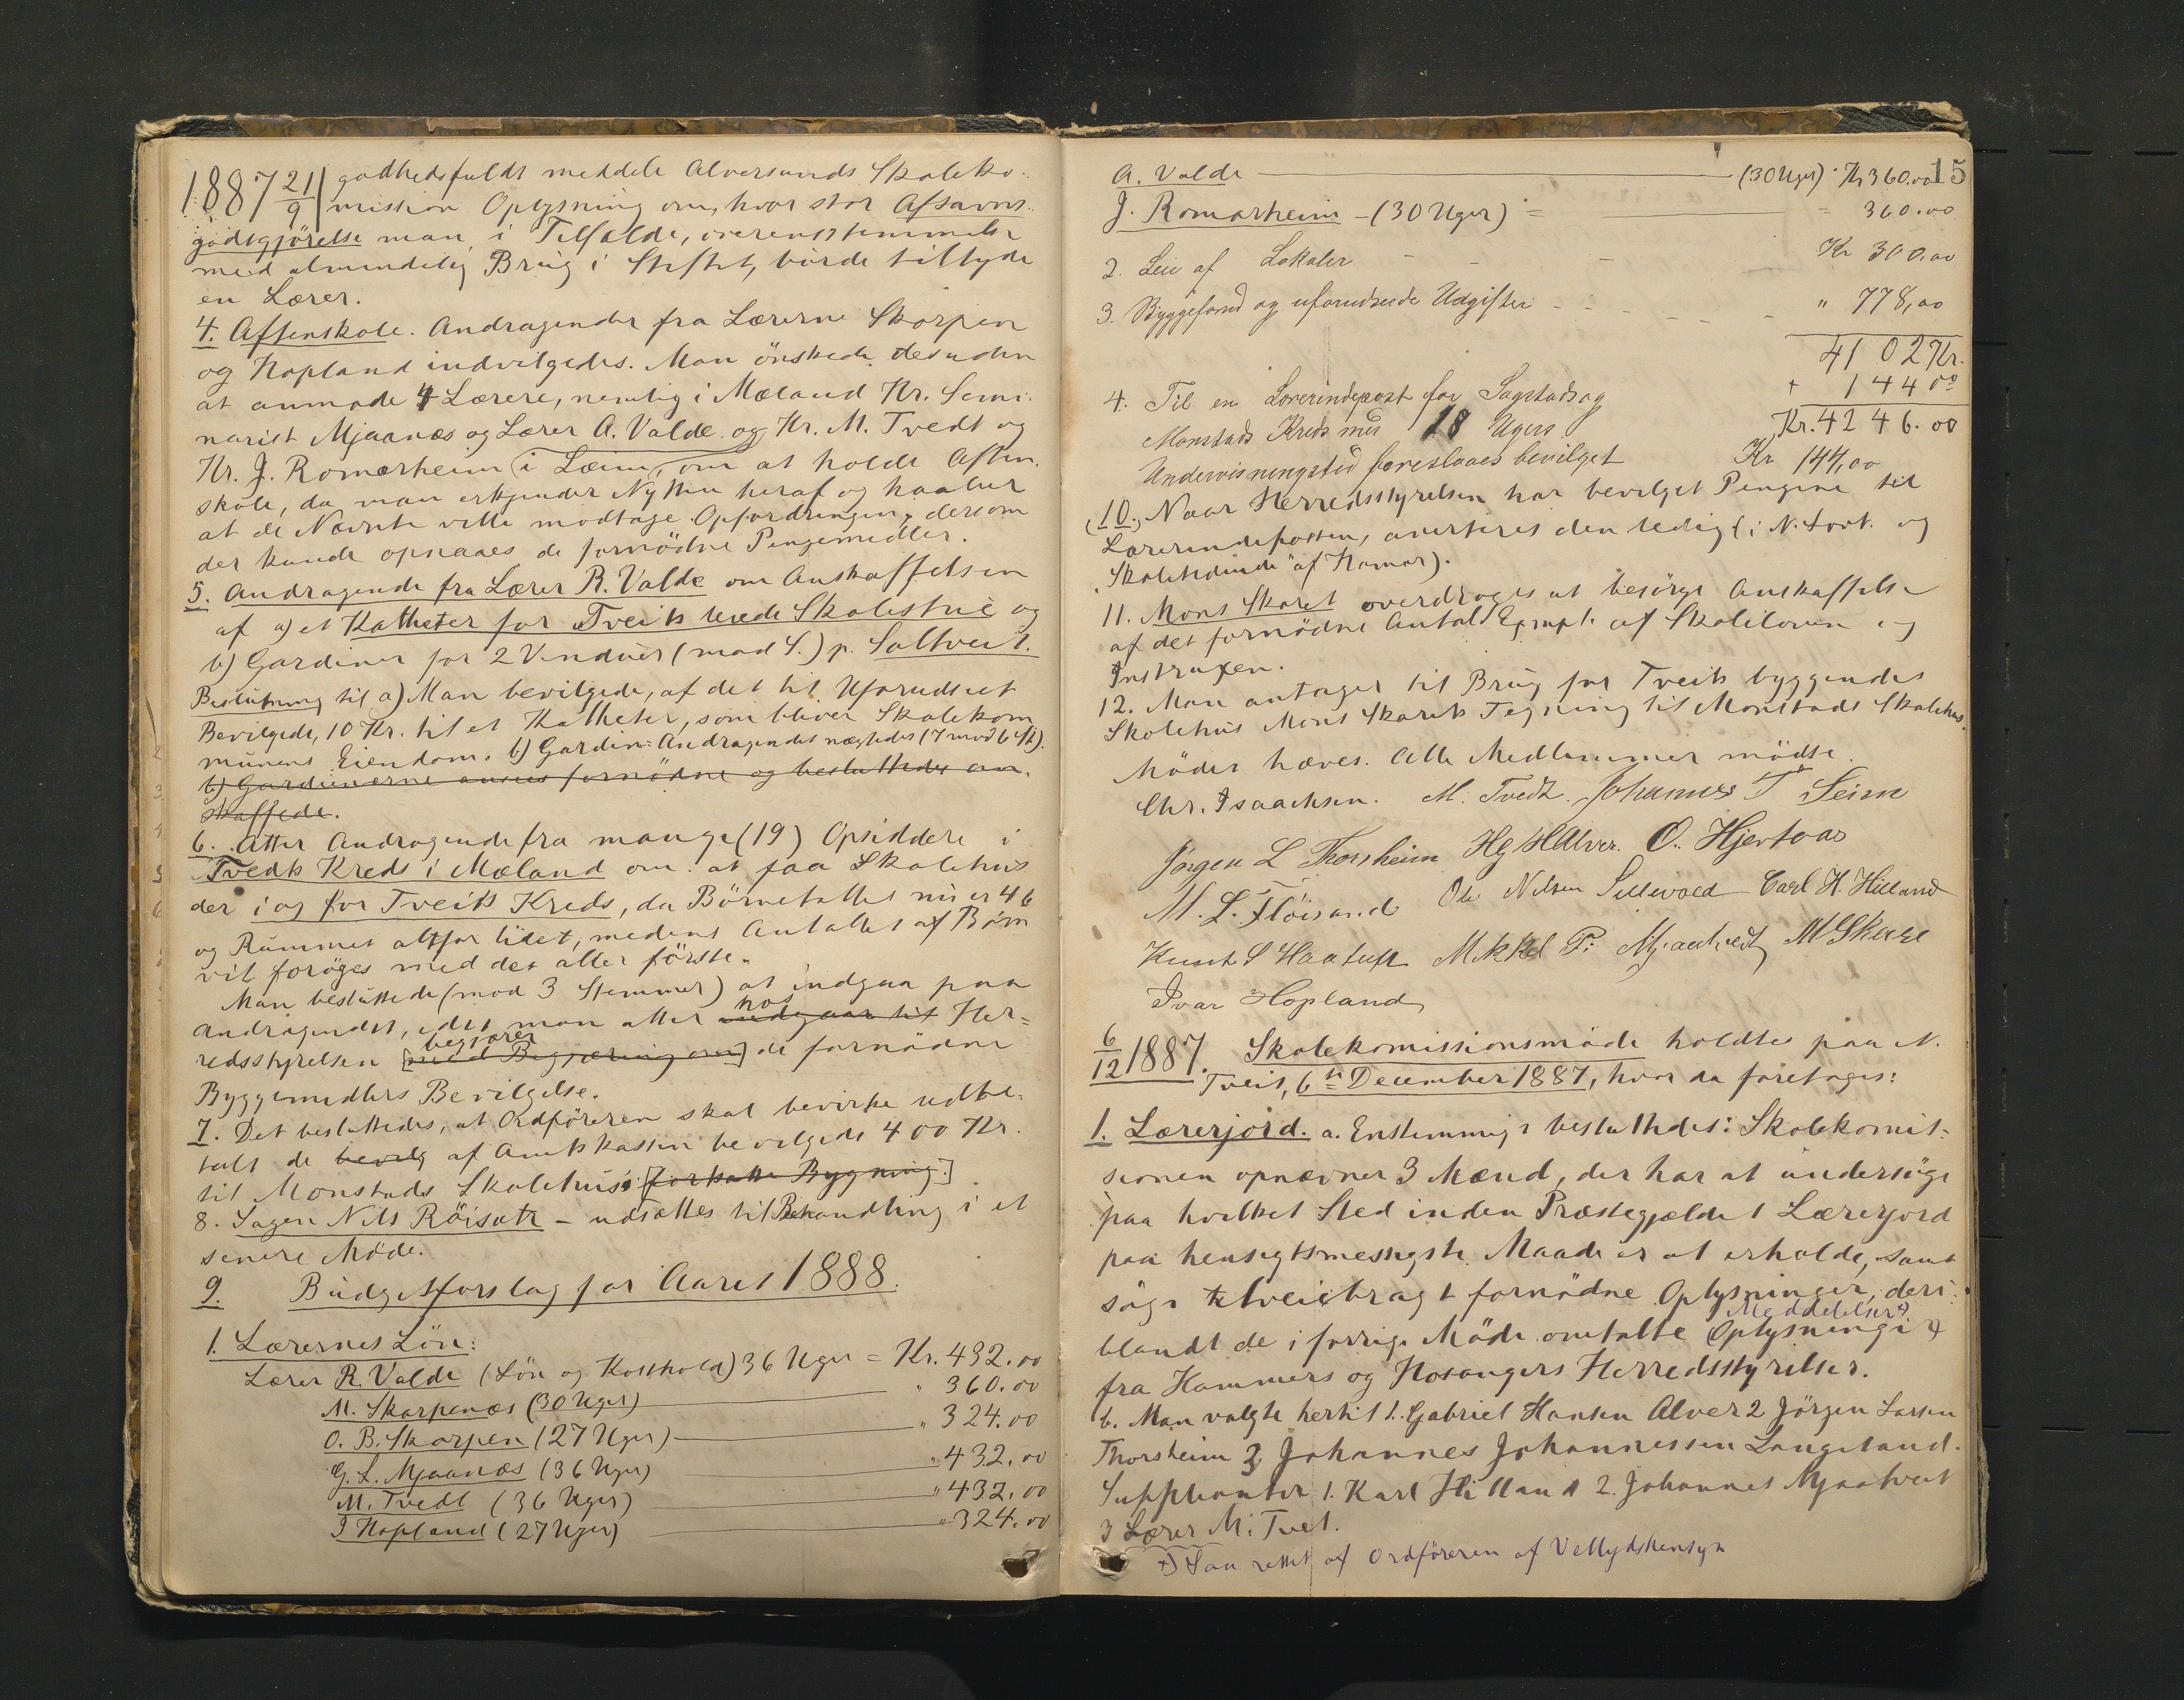 1887 21/9 godhedsfuldt meddele Alversunds Skoleko-
mission Oplysning om, hvor stor Afsavns-
godtgjörelse man, i Tilfælde, overensstemmelse
med almindelig Brug i Stiftet, börde tillyde
en Lærer.
4. Aftenskole. Andragender fra Lærerne Skarpen
og Hopland indvilgedes. Man önskede desuden
at anmode 4 Lærere, nemlig i Mæland Hr. Semi-
narist Mjaanæs og Lærer A. Valde og Hr. M. Tvedt og
Hr. J. Romarheim i Læim, om at holde Aften-
skole, da man erkjender Nytten heraf og haaber
at de Nævnte ville modtage Opfordringen, dersom
der kunde opnaaes de fornödne Pengemidler.
5. Andragende fra Lærer R. Valde om Anskaffelsen
af a) et Katheter for Tveits leiede Skolestue og
b) Gardiner for 2 Vinduer (mod S.) p. Saltveit.
Beslutning til a) Man bevilgede, af det til Uforudseet
Bevilgede, 10 Kr. til et Katheter, som bliver Skolekom
munens Eiendom. b) Gardin-Andragendet nægtedes (7 mod 6 St).
b) Gardinerne ansees fornödne og besluttedes an-
skaffede.
6. Atter Andragende fra mange (19) Opsiddere i
Tvedts Kreds i Mæland om at faa Skolehus
der i og for Tveits Kreds, da Börnetallet nu er 46
og Rummet altfor lidet, medens Antallet af Börn
vil foröges med det aller förste.
Man besluttede (mod 3 Stemmer) at indgaa paa
Andragendet, idet man atter hos indgaar til Her-
redsstyrelsen begjærer [med Begjæring om] de fornödne
Byggemidlers Bevilgelse.
7. Det besluttedes, at Ordföreren skal bevirke udbe-
talt de bevilg af Amtskassen bevilgede 400 Kr.
til Monstads Skolehus's [forhatte Bygning.]
8. Sagen Nils Röisæte - udsættes til Behandling i et
senere Möde.
9. Budgetforslag for Aaret 1888.
1. Lærernes Lön:
Lærer R. Valde (Lön og Kosthold) 36 Uger = Kr. 432.00
M. Skarpenæs (30 Uger) " 360.00
O. B. Skarpen (27 Uger) " 324.00
G. L. Mjaanæs (36 Uger) " 432.00
M. Tvedt (36 Uger) " 432.00
I Hopland (27 Uger) " 324.00
15
A. Valde (30 Uger) Kr 360.00
J. Romarheim - (30 Uger) = = 360.00
2. Leie af Lokaler - - - Kr 300,00
3. Byggefond og uforudseede Udgifter - - - " 778,00
4102 Kr.
4. Til en Lærerindepost for Sagstads og + 144 00
Monstads Kreds med 18 Ugers Kr. 4246.00
Undervisningstid foreslaaes bevilget Kr 144,00
10. Naar Herredsstyrelsen har bevilget Pengene til
Lærerindeposten, averteres den ledig (i N. Fort. og
"Skoletidende" af Hamar).
11. Mons Skaret overdroges at besörge Anskaffelse
af det fornödne Antal Expmpl. af Skoleloven og
Instruxen.
12. Man antager til Brug for Tveits byggendes
Skolehus Mons Skarets Tegning til Monstads Skolehus.
Mödet hæves. Alle Medlemmer mödte.
Chr. Isaachsen. M. Tvedt. Johannes T Seim
Jörgen L Thorsheim Hg H Alver. O. Hjertaas
M. L. Flöisand Ole Nilsen Sellevold Carl H. Hilland
Knut S Haatuft Mikkel P. Mjaatvedt M Skare
Ivar Hopland
6/12 1887. Skolekomissionsmöde holdtes paa N.
Tveit, 6te December 1887, hvor da foretoges:
1. Lærerjord. a. Enstemmigt besluttedes: Skolekomis-
sionen opnævner 3 Mænd, der har at undersöge
paa hvilket Sted inden Præstegjældet Lærerjord
paa hensigtsmessigste Maade er at erholde, samt
söge tilveiebragt fornödne Oplysninger, deri-
blandt de i forrige Möde omtalte Meddelelser +) (Oplysninger)
fra Hammers og Hosangers Herredsstyrelser.
b. Man valgte hertil 1. Gabriel Hansen Alver 2 Jörgen Larsen
Thorsheim 3 Johannes Johannessen Langeland.
Suppleanter 1. Karl Hilland 2. Johannes Mjaatveit
3 Lærer M. Tvet.
+) Saa rettet af Ordföreren af Vellydshensyn